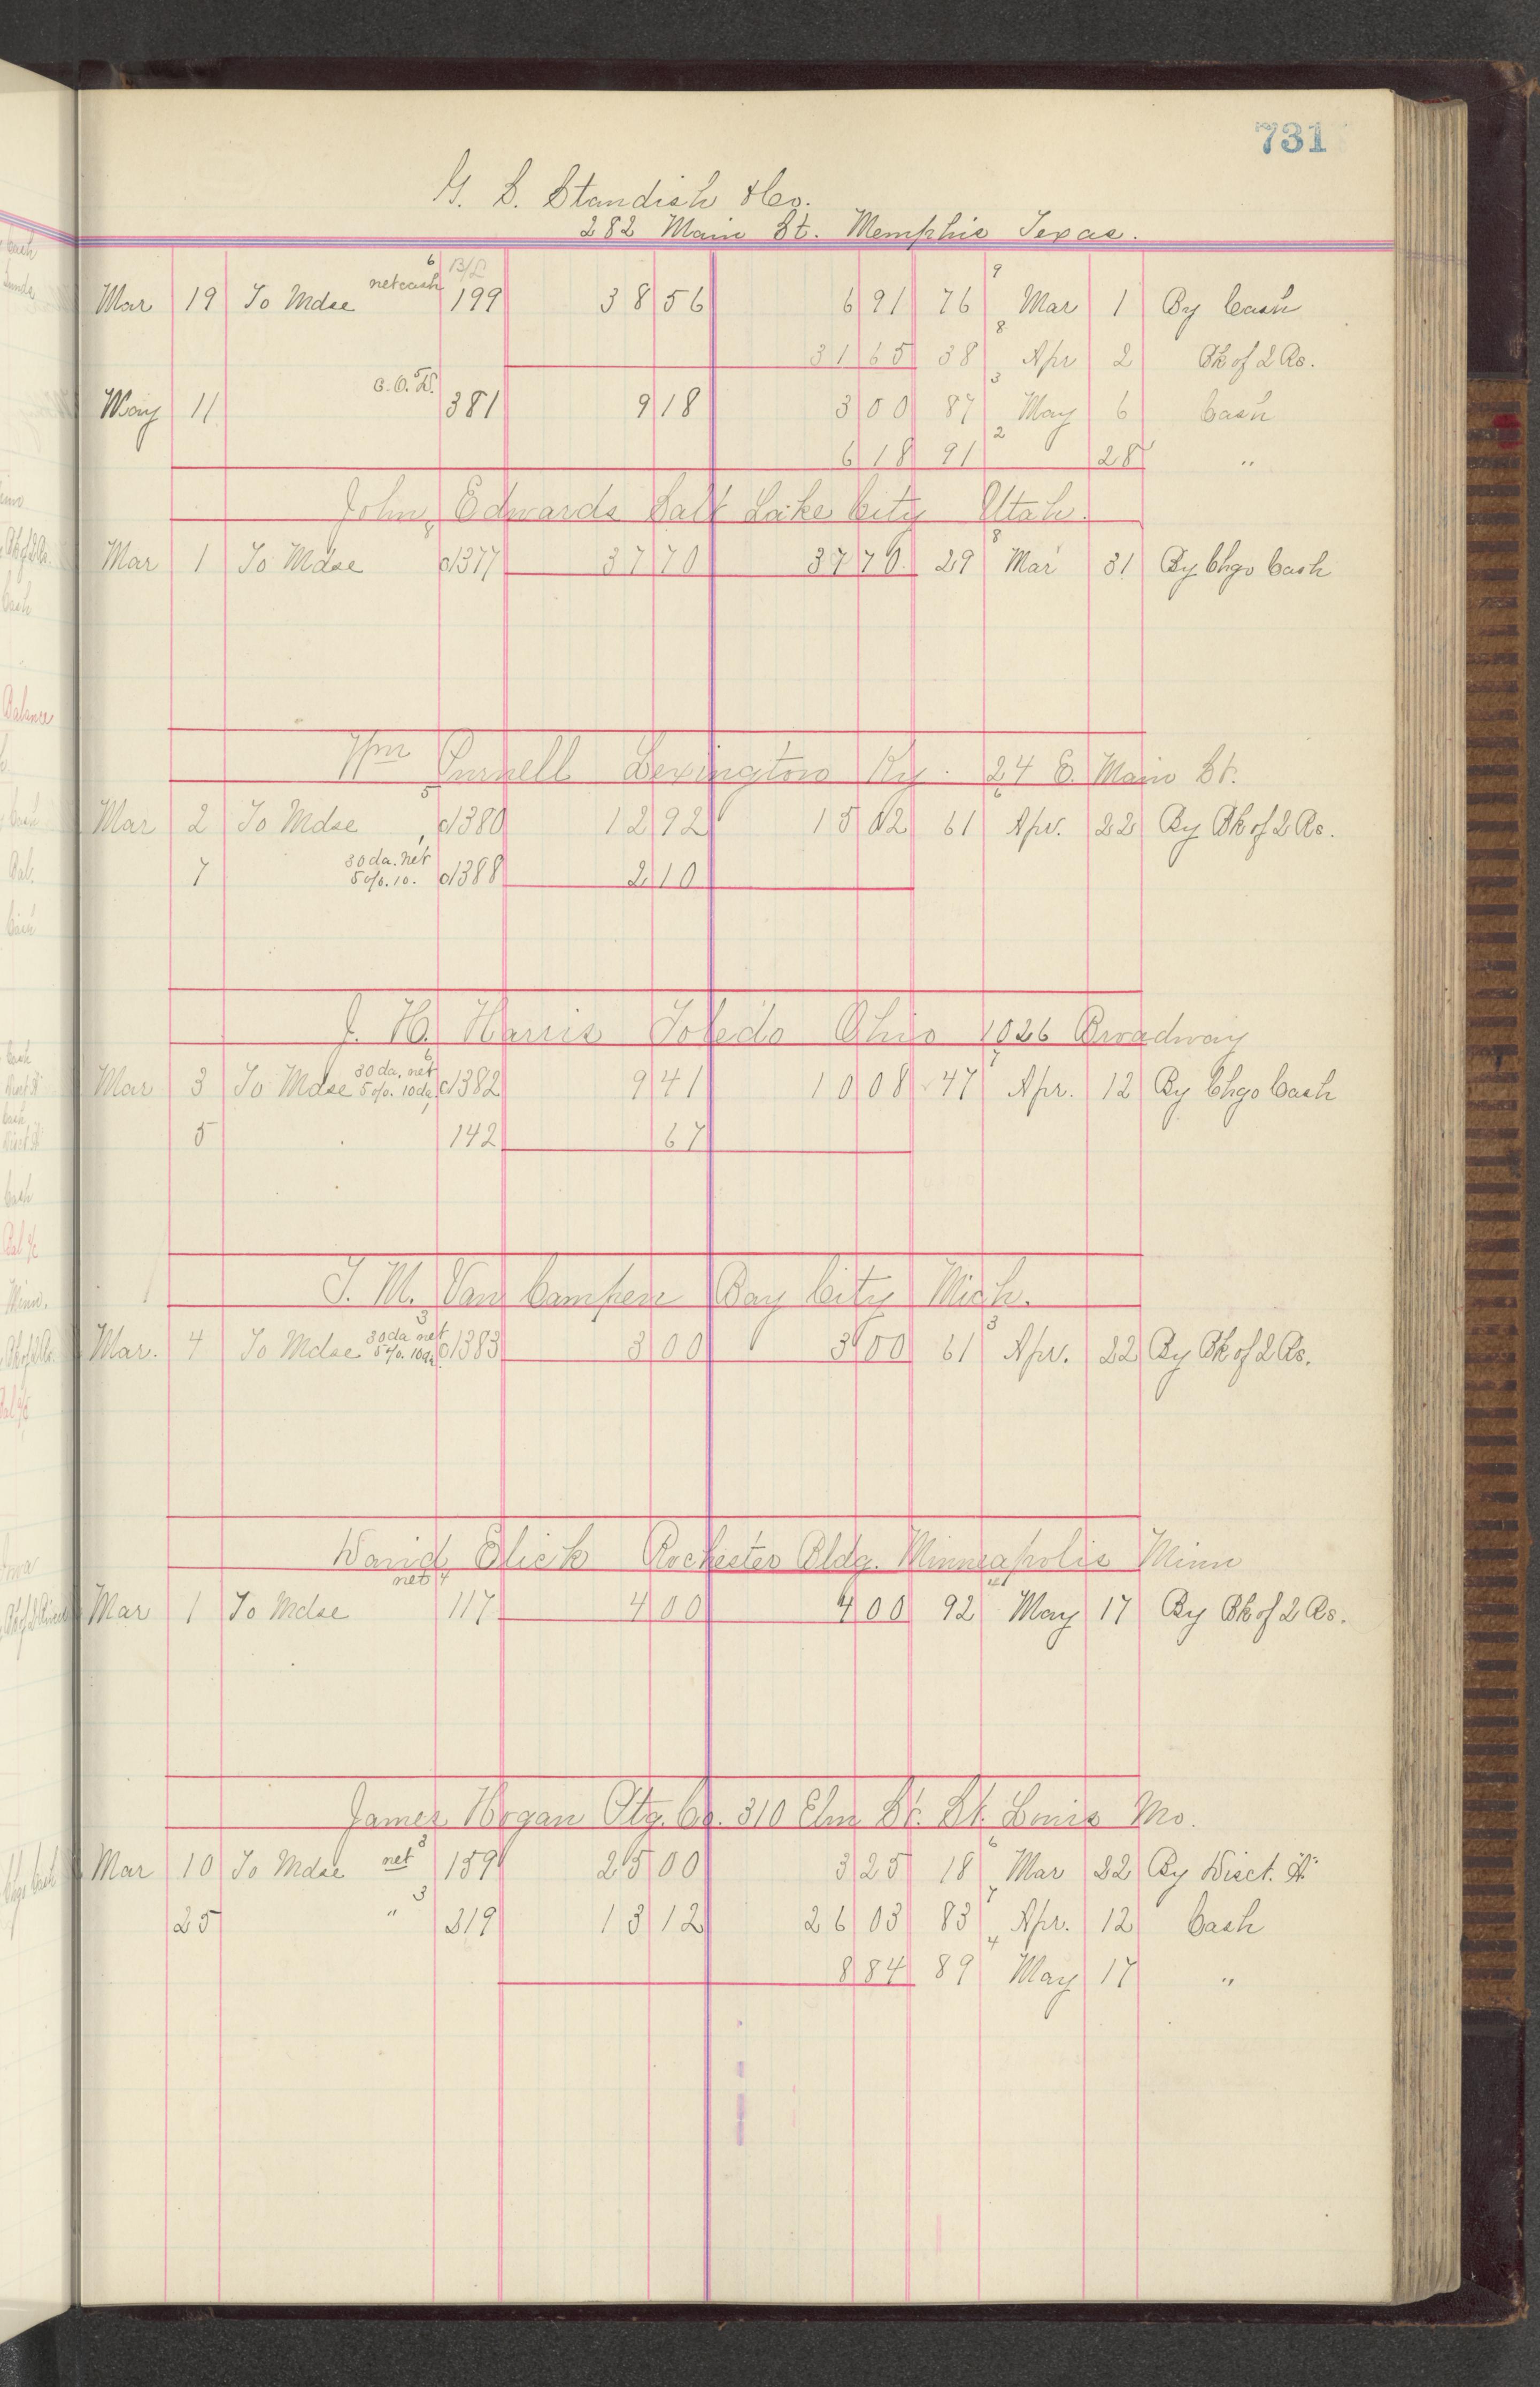 731
G. S. Standish & Co.
282 Main St. Memphis Texas.
6 B/L 9
Mar 19 To Mdse net cash 199 38 56 6 91 76 Mar 1 By Cash
8
31 65 38 Apr 2 Bk of 2 Rs.
C.O.D. 3
May 11 381 9 18 3 00 87 May 6 Cash
2
6 18 91 28 "
John Edwards Salt Lake City Utah.
8 8
Mar 1 To Mdse c/1377 37 70 37 70 29 Mar 31 By Chgo Cash
Wm Purnell Lexington Ky. 24 E. Main St.
5 6
Mar 2 To Mdse c/1380 12 92 15 02 61 Apr. 22 By Bk of 2 Rs.
1
7 30 da. net 5%. 10. c/1388 2 10
J. H. Harris Toledo Ohio 1026 Broadway
6 7
Mar 3 To Mdse 30 da. net 5%. 10 da. c/1382 9 41 10 08 47 Apr. 12 By Chgo Cash
1
5 142 67
T. M. Van Campen Bay City Mich.
3 3
Mar. 4 To Mdse 30 da net 5%. 10 da. c/1383 3 00 3 00 61 Apr. 22 By Bk of 2 Rs.
David Elick Rochester Bldg. Minneapolis Minn
net 4 4
Mar 1 To Mdse 117 4 00 4 00 92 May 17 By Bk of 2 Rs.
James Hogan Ptg. Co. 310 Elm St. St. Louis Mo.
3 6
Mar 10 To Mdse net 159 25 00 3 25 18 Mar 22 By Disct. St
3 7
25 " 319 13 12 26 03 83 Apr. 12 Cash
4
8 84 89 May 17 "